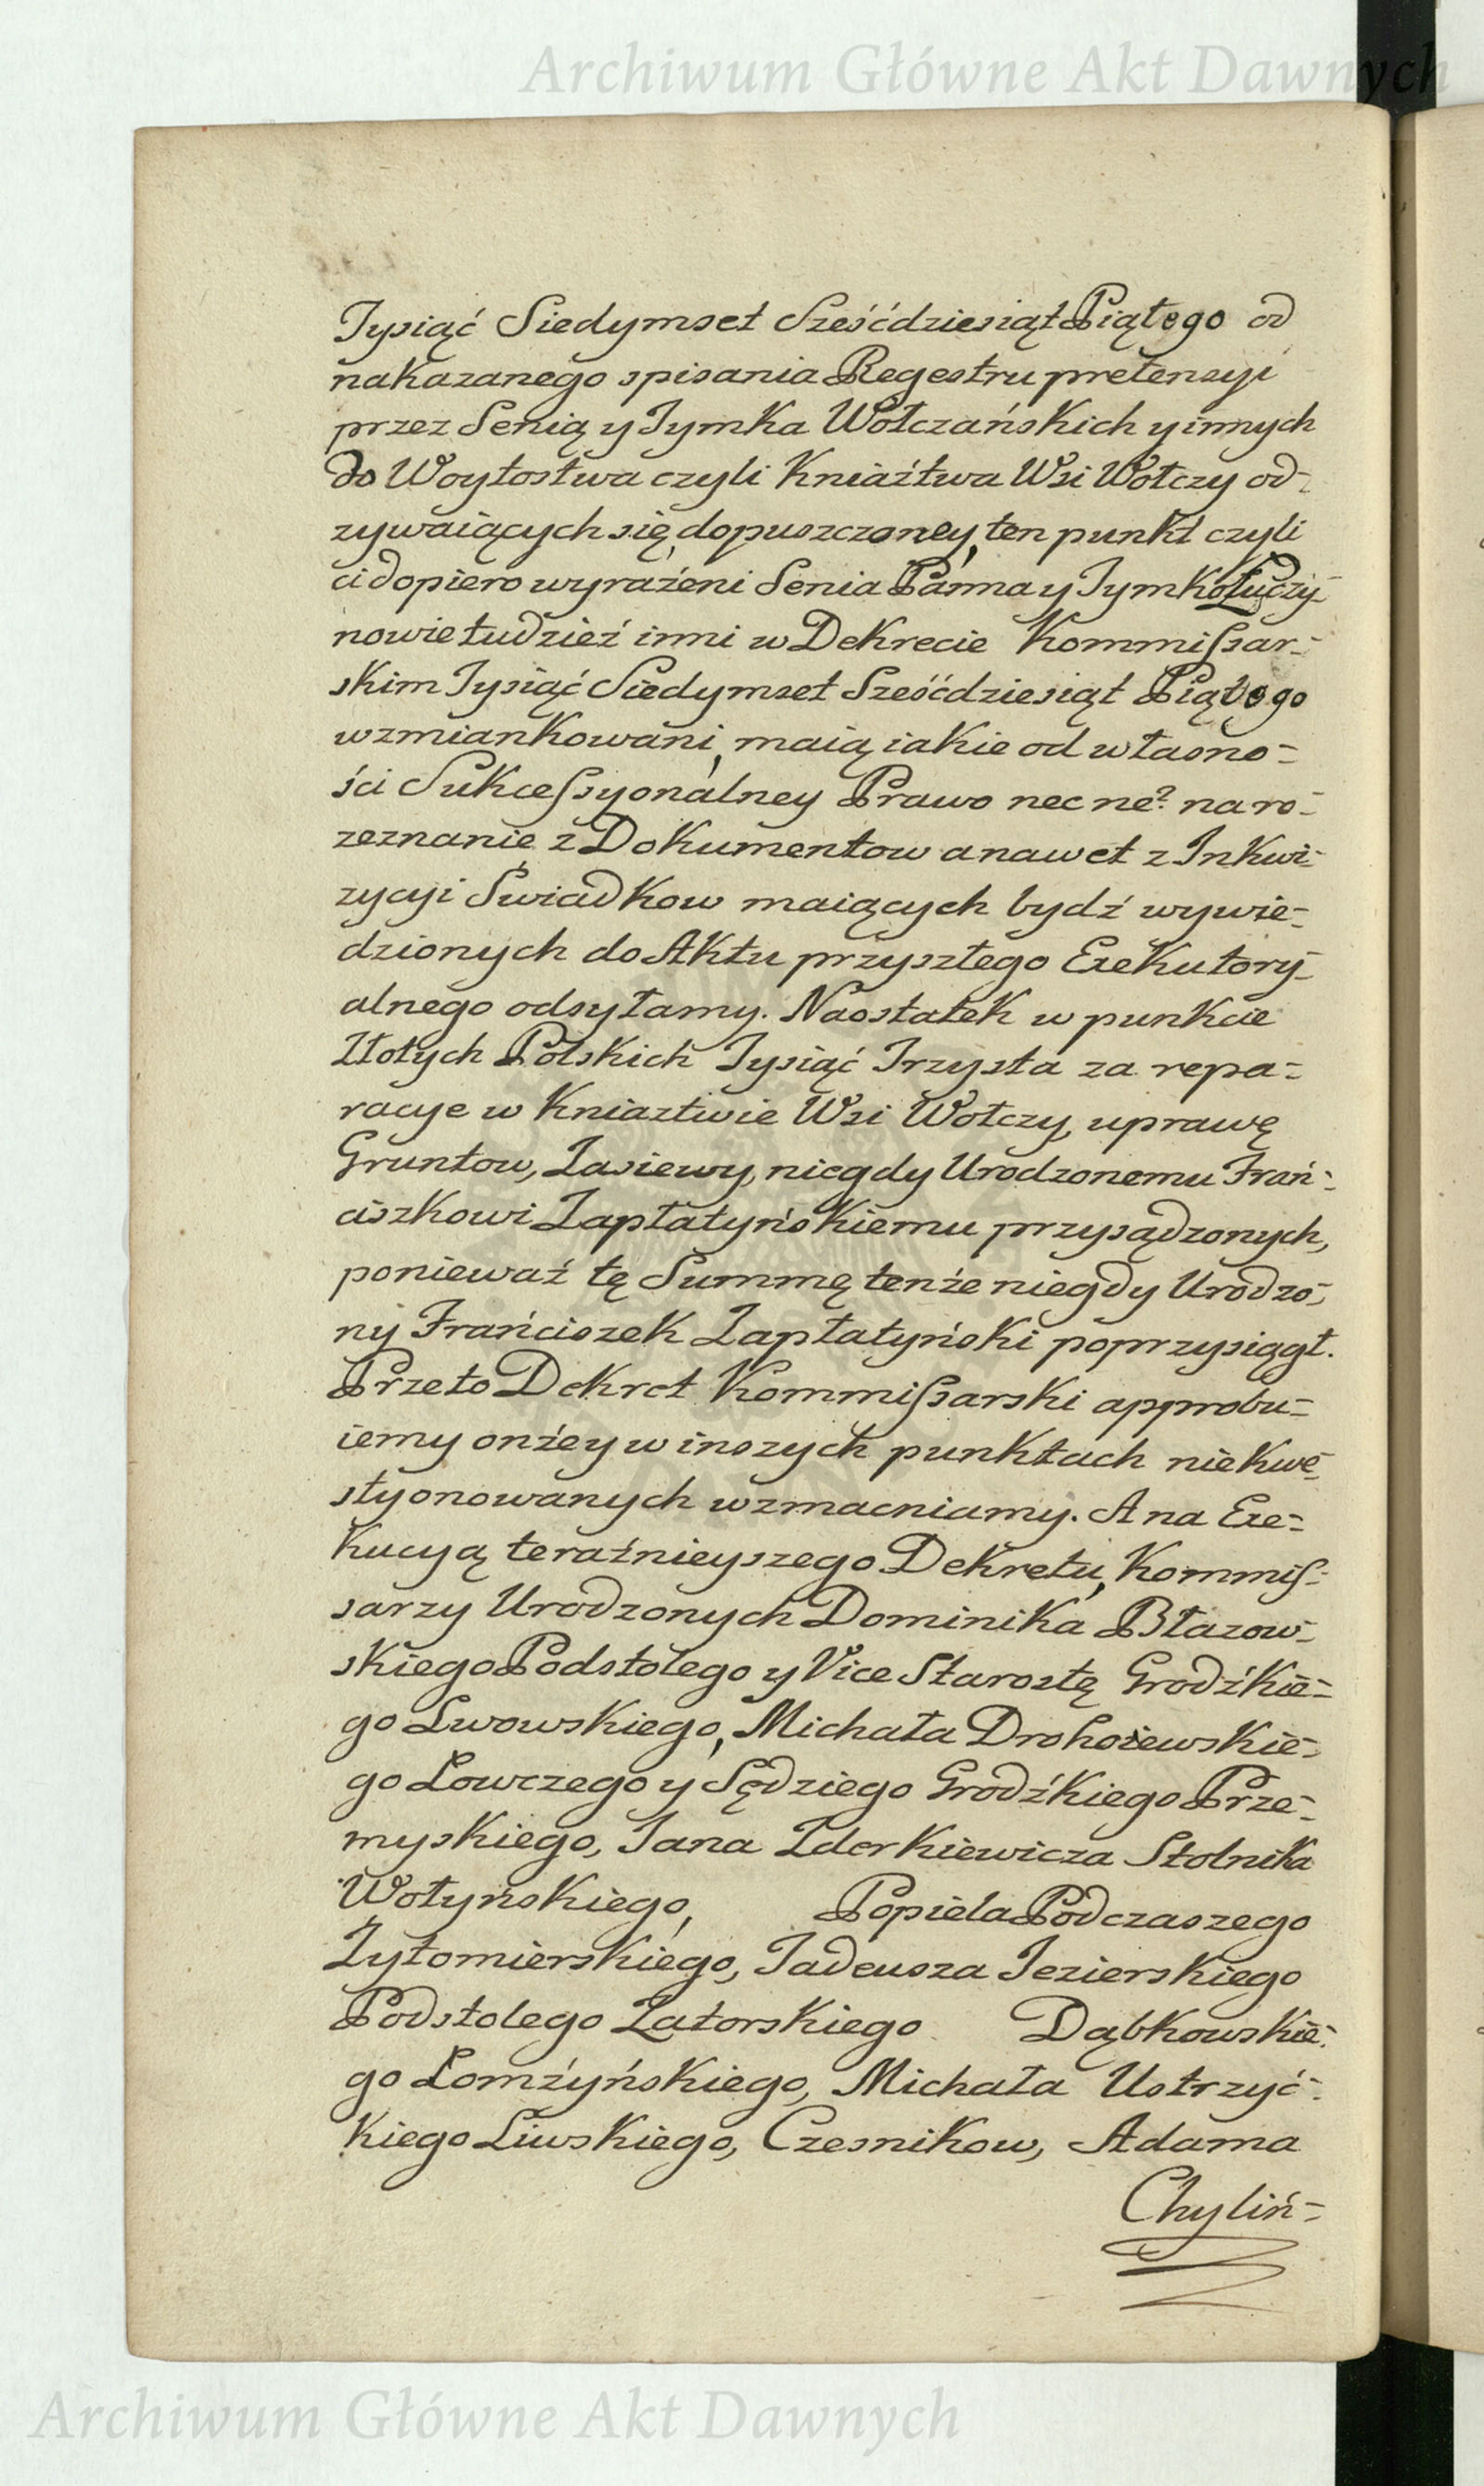 Archiwum Główne Akt Dawnych
Tysiąć Siedymset Sześćdziesiąt Piątego od
nakazanego spisania Regestru pretensyi
przez Senią y Tymka Wołczańskich y innych
do Woytostwa czyli Kniaźtwa Wsi Wołczy od-
zywaiących się, dopuszczoney, ten punkt czyli
ci dopiero wyrażeni Senia Panna y Tymko Łuczy-
nowie tudzież inni w Dekrecie Kommissar-
skim Tysiąć Siedymset Sześćdziesiąt Piątego
wzmiankowani, maią iakie od własno-
ści Sukcessyonalney Prawo nec ne? na ro-
zeznanie z Dokumentow a nawet z Inkwi-
zycyi Swiadkow maiących bydź wywie-
dzionych do Aktu przyszłego Exekutory-
alnego odsyłamy. Naostatek w punkcie
Złotych Polskich Tysiąć Trzysta za repa-
racye w Kniaztwie Wsi Wołczy, uprawę
Gruntow, Zasiewy, niegdy Urodzonemu Frań-
ciszkowi Zapłatyńskiemu przysądzonych,
ponieważ tę Summę tenże niegdy Urodzo-
ny Frańciszek Zapłatyński poprzysiągł.
Przeto Dekret Kommissarski approbu-
iemy onżey w inszych punktach niekwe-
styonowanych wzmacniamy. A na Exe-
kucyą teraźnieyszego Dekretu, Kommis-
sarzy Urodzonych Dominika Błazow-
skiego Podstolego y Vice Starostę Grodźkie-
go Lwowskiego, Michała Drohoiewskie-
go Łowczego y Sędziego Grodźkiego Prze-
myskiego, Jana Zderkiewicza Stolnika
Wołyńskiego, Popiela Podczaszego
Zytomierskiego, Tadeusza Jezierskiego
Podstolego Zatorskiego Dąbkowskie-
go Łomżyńskiego, Michała Ustrzyć-
kiego Liwskiego, Czesnikow, Adama
Chyliń-
Archiwum Główne Akt Dawnych